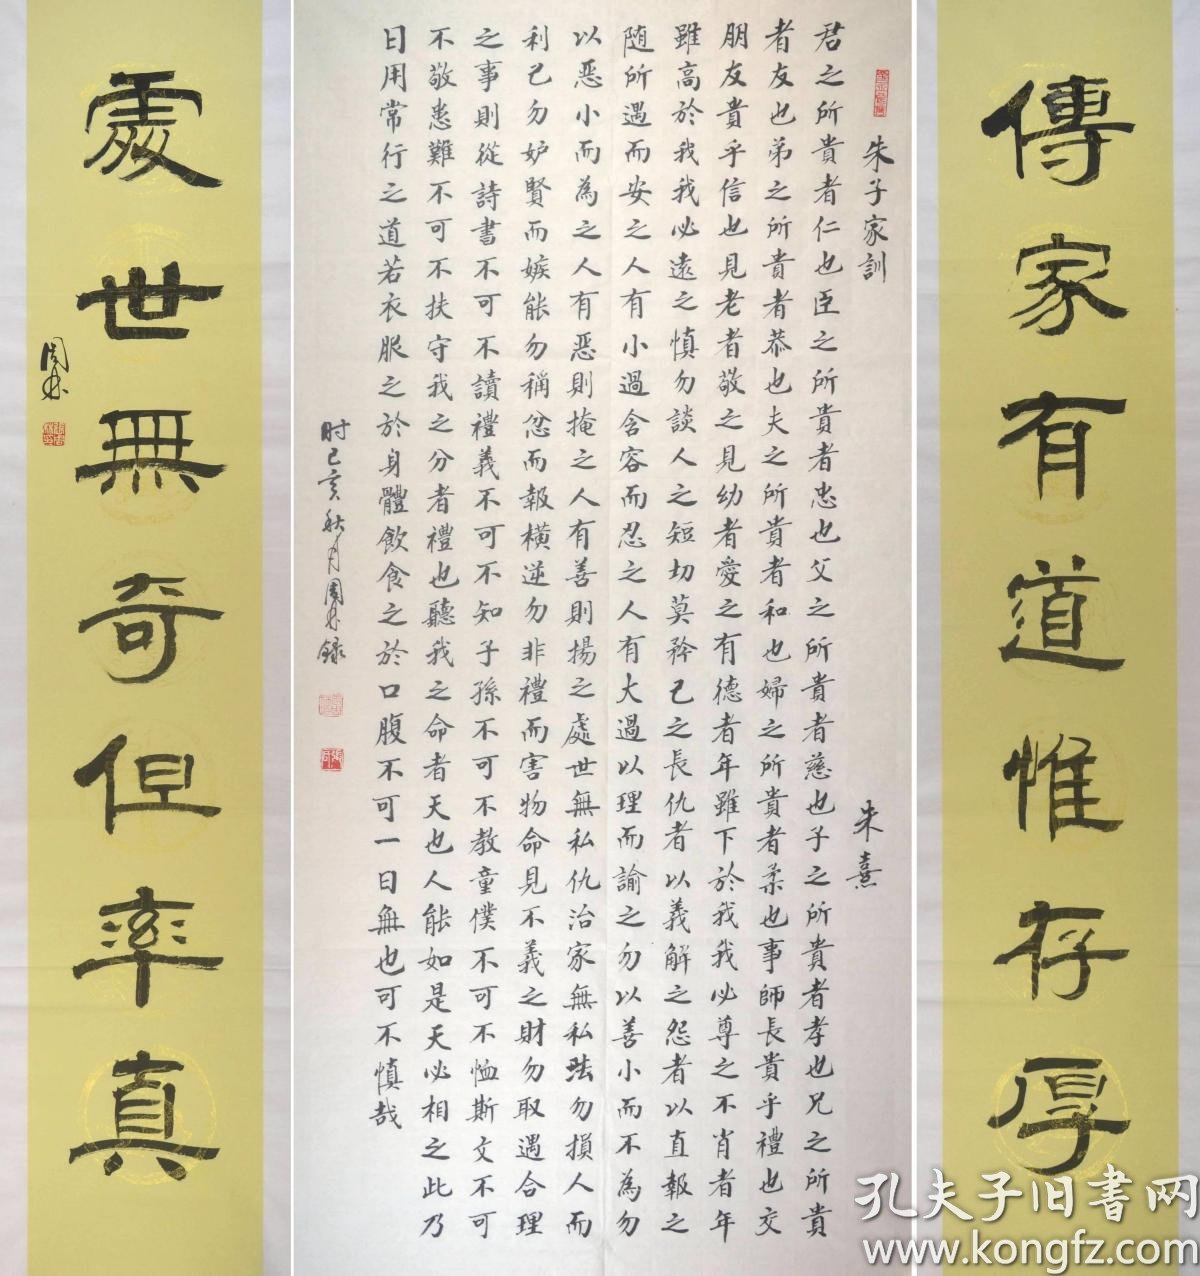 傳家有道惟存厚
朱子家訓 朱熹
君之所貴者仁也臣之所貴者忠也父之所貴者慈也子之所貴者孝也兄之所貴
者友也弟之所貴者恭也夫之所貴者和也婦之所貴者柔也事師長貴乎禮也交
朋友貴乎信也見老者敬之見幼者愛之有德者年雖下於我我必尊之不肖者年
雖高於我我必遠之慎勿談人之短切莫矜己之長仇者以義解之怨者以直報之
隨所遇而安之人有小過含容而忍之人有大過以理而諭之勿以善小而不為勿
以惡小而為之人有惡則掩之人有善則揚之處世無私仇治家無私法勿損人而
利己勿妒賢而嫉能勿稱忿而報橫逆勿非禮而害物命見不義之財勿取遇合理
之事則從詩書不可不讀禮義不可不知子孫不可不教童僕不可不恤斯文不可
不敬患難不可不扶守我之分者禮也聽我之命者天也人能如是天必相之此乃
日用常行之道若衣服之於身體飲食之於口腹不可一日無也可不慎哉
时己亥秋月周林錄
處世無奇但率真
周林
孔夫子旧书网
www.kongfz.com